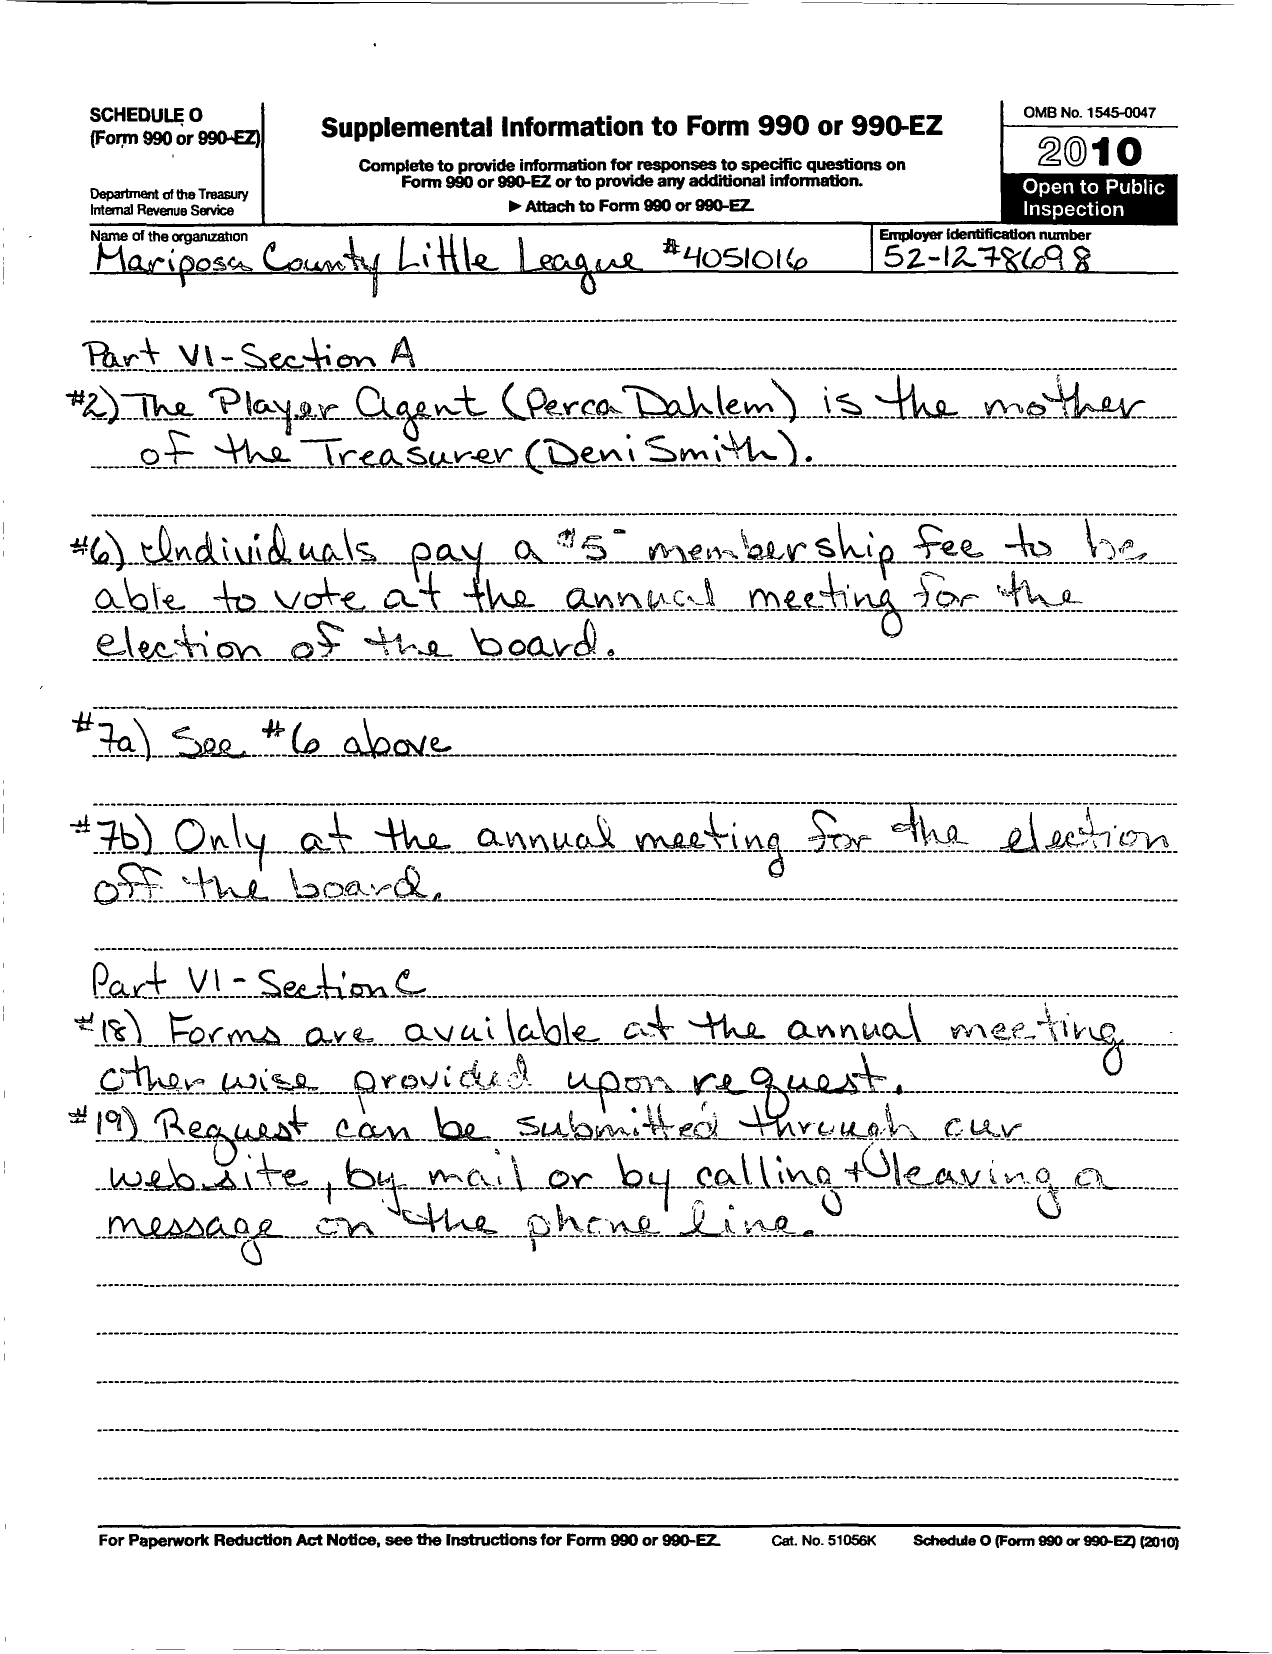 SCHEDULE O
(Form 990 or 990-EZ)
Department of the Treasury
Internal Revenue Service
Supplemental Information to Form 990 or 990-EZ
Complete to provide information for responses to specific questions on
Form 990 or 990-EZ or to provide any additional information.
▶ Attach to Form 990 or 990-EZ.
OMB No. 1545-0047
2010
Open to Public
Inspection
Name of the organization
Mariposa County Little League #4051016
Employer identification number
52-1278698
Part VI - Section A
#2) The Player Agent (Perca Dahlem) is the mother
of the Treasurer (Deni Smith).
#6) Individuals pay a $5- membership fee to be
able to vote at the annual meeting for the
election of the board.
#7a) See #6 above
#7b) Only at the annual meeting for the election
off the board.
Part VI - Section C
#18) Forms are available at the annual meeting
otherwise provided upon request.
#19) Request can be submitted through our
website, by mail or by calling + leaving a
message on the phone line.
For Paperwork Reduction Act Notice, see the Instructions for Form 990 or 990-EZ.
Cat. No. 51056K
Schedule O (Form 990 or 990-EZ) (2010)